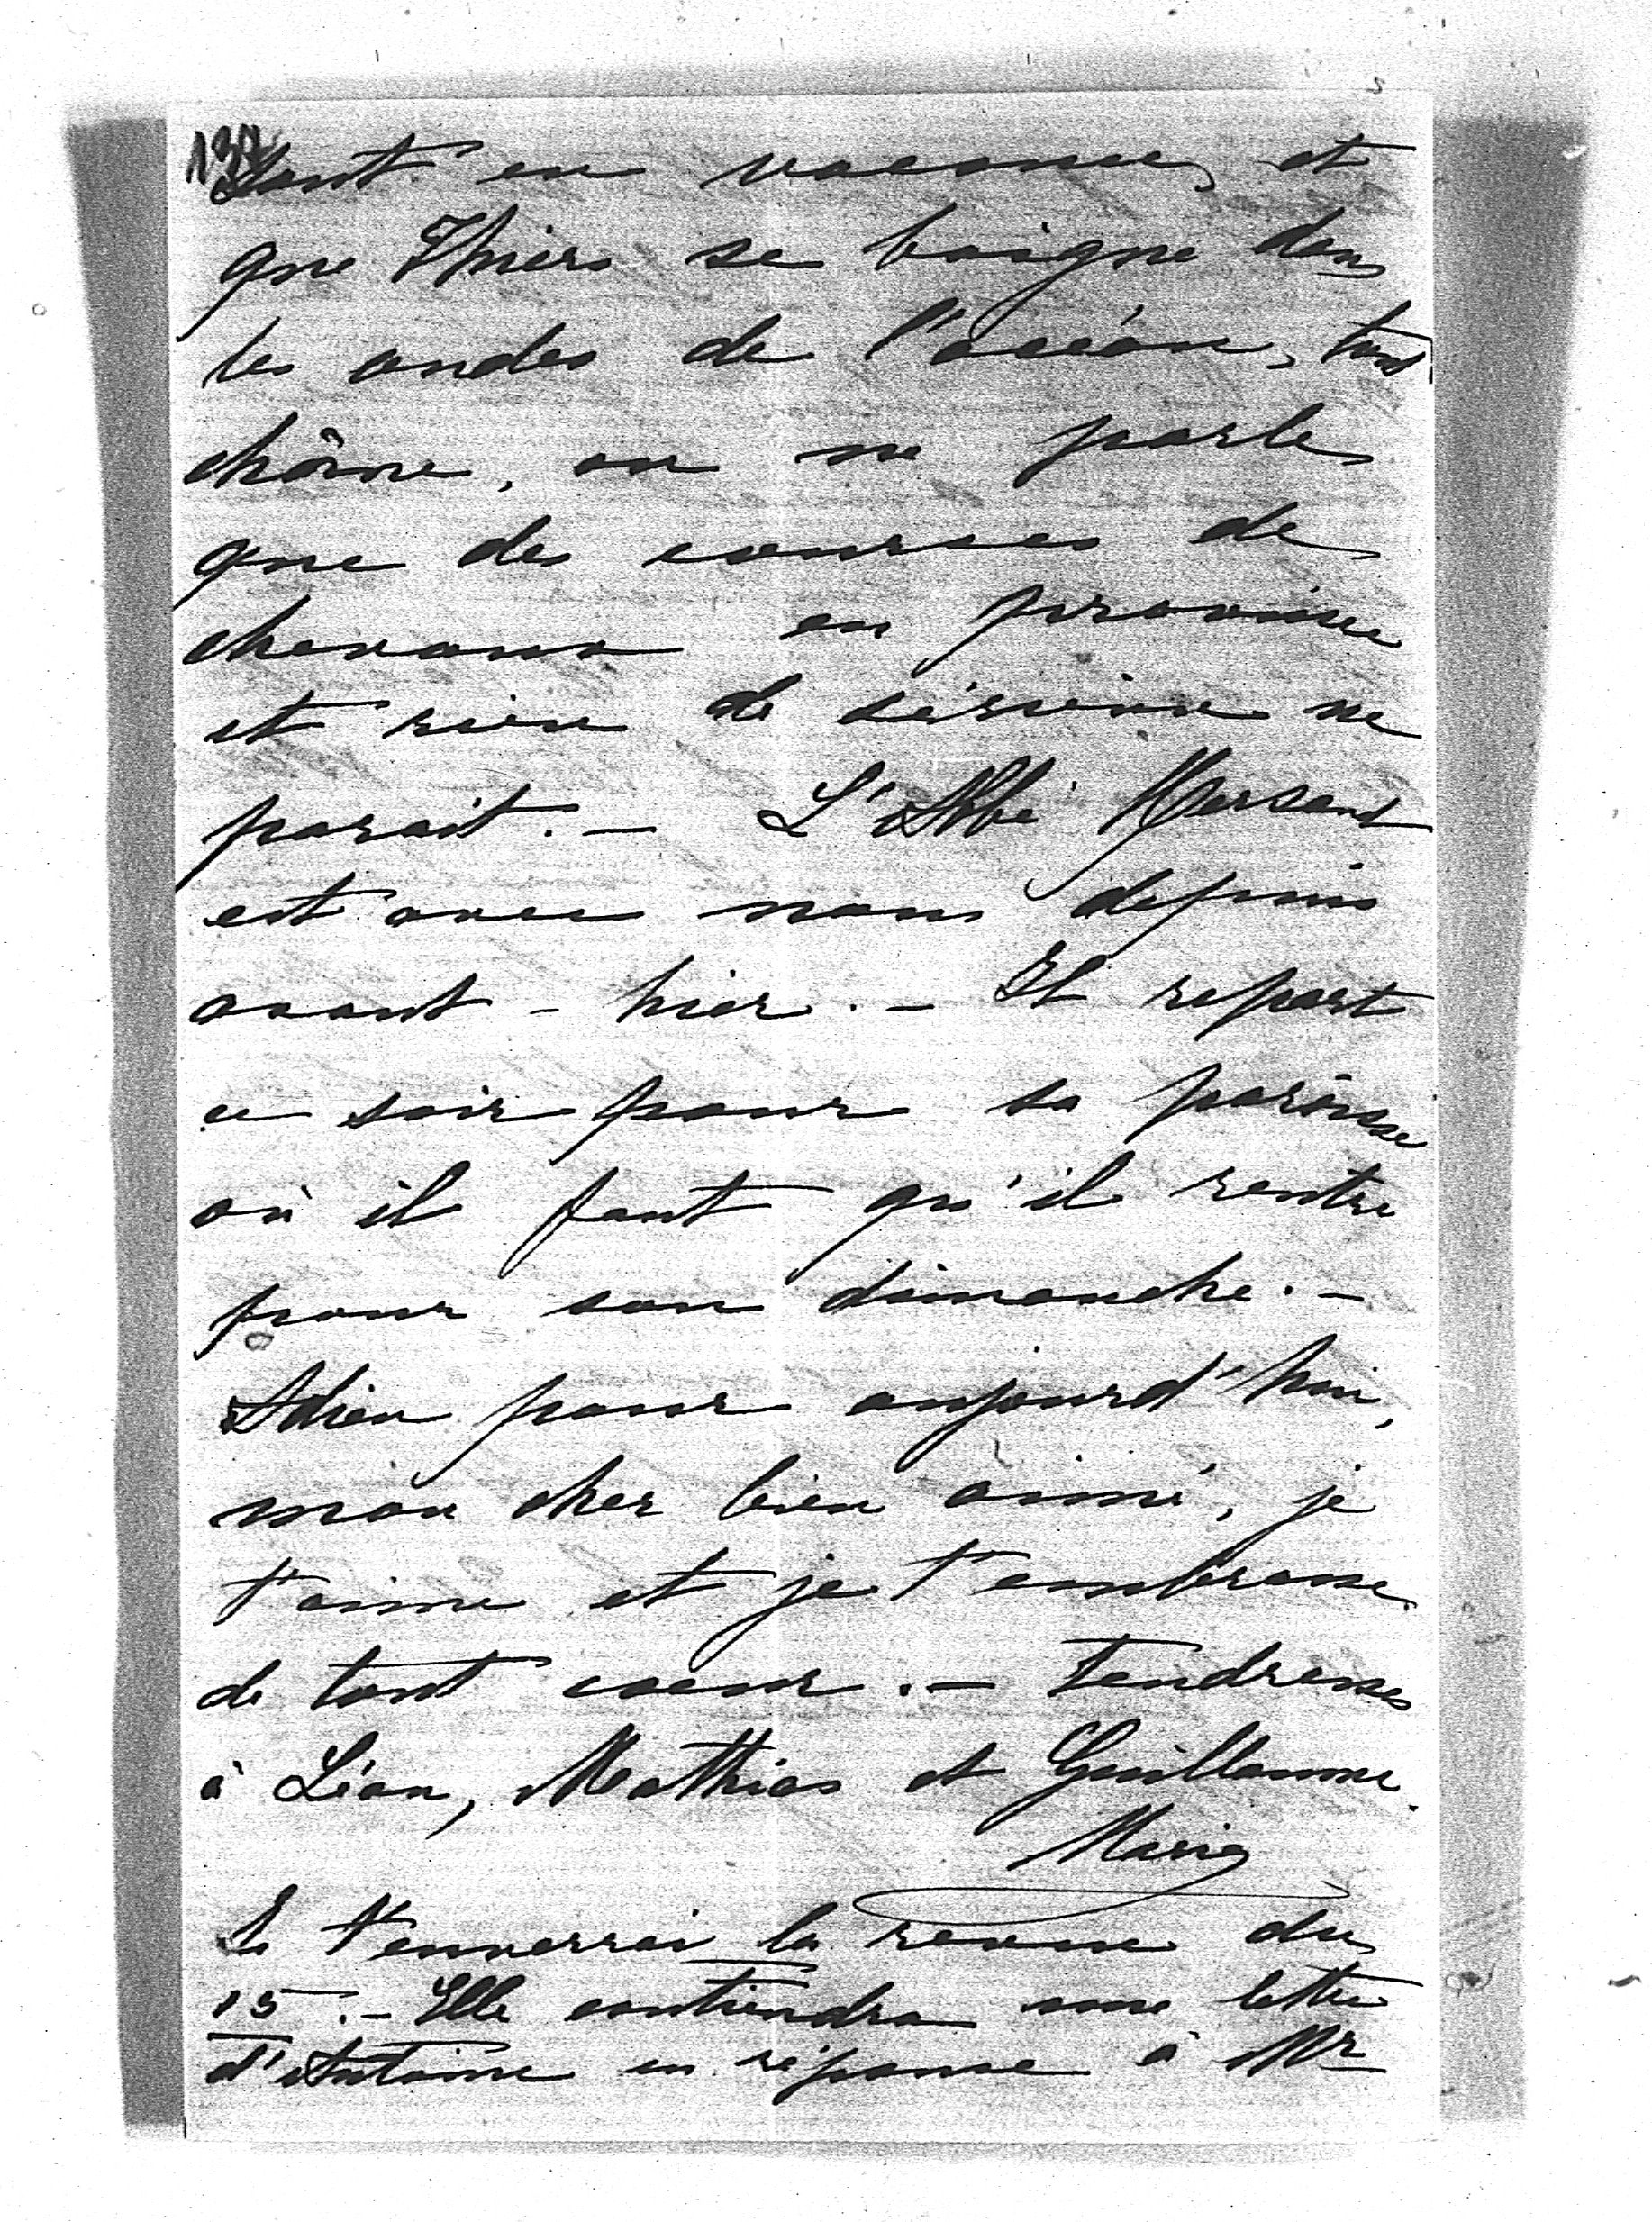 137
sont en vacances, et
que Thiers se baigne dans
les ondes de l'océan, tout
chôme, on ne parle
que des courses de
chevaux en province
et rien de sérieux ne
parait. - L'Abbé
est avec nous depuis
avant-hier. - Il repart
ce soir pour sa paroisse
où il faut qu'il rentre
pour son dimanche. -
Adieu pour aujourd'hui,
mon cher bien aimé, je
t'aime et je t'embrasse
de tout coeur. - Tendresses
à Léon, Mathias et Guillaume.
Marie
Je t'enverrai la revue du
15. - Elle contiendra une lettre
d'Antoine en réponse à Mr